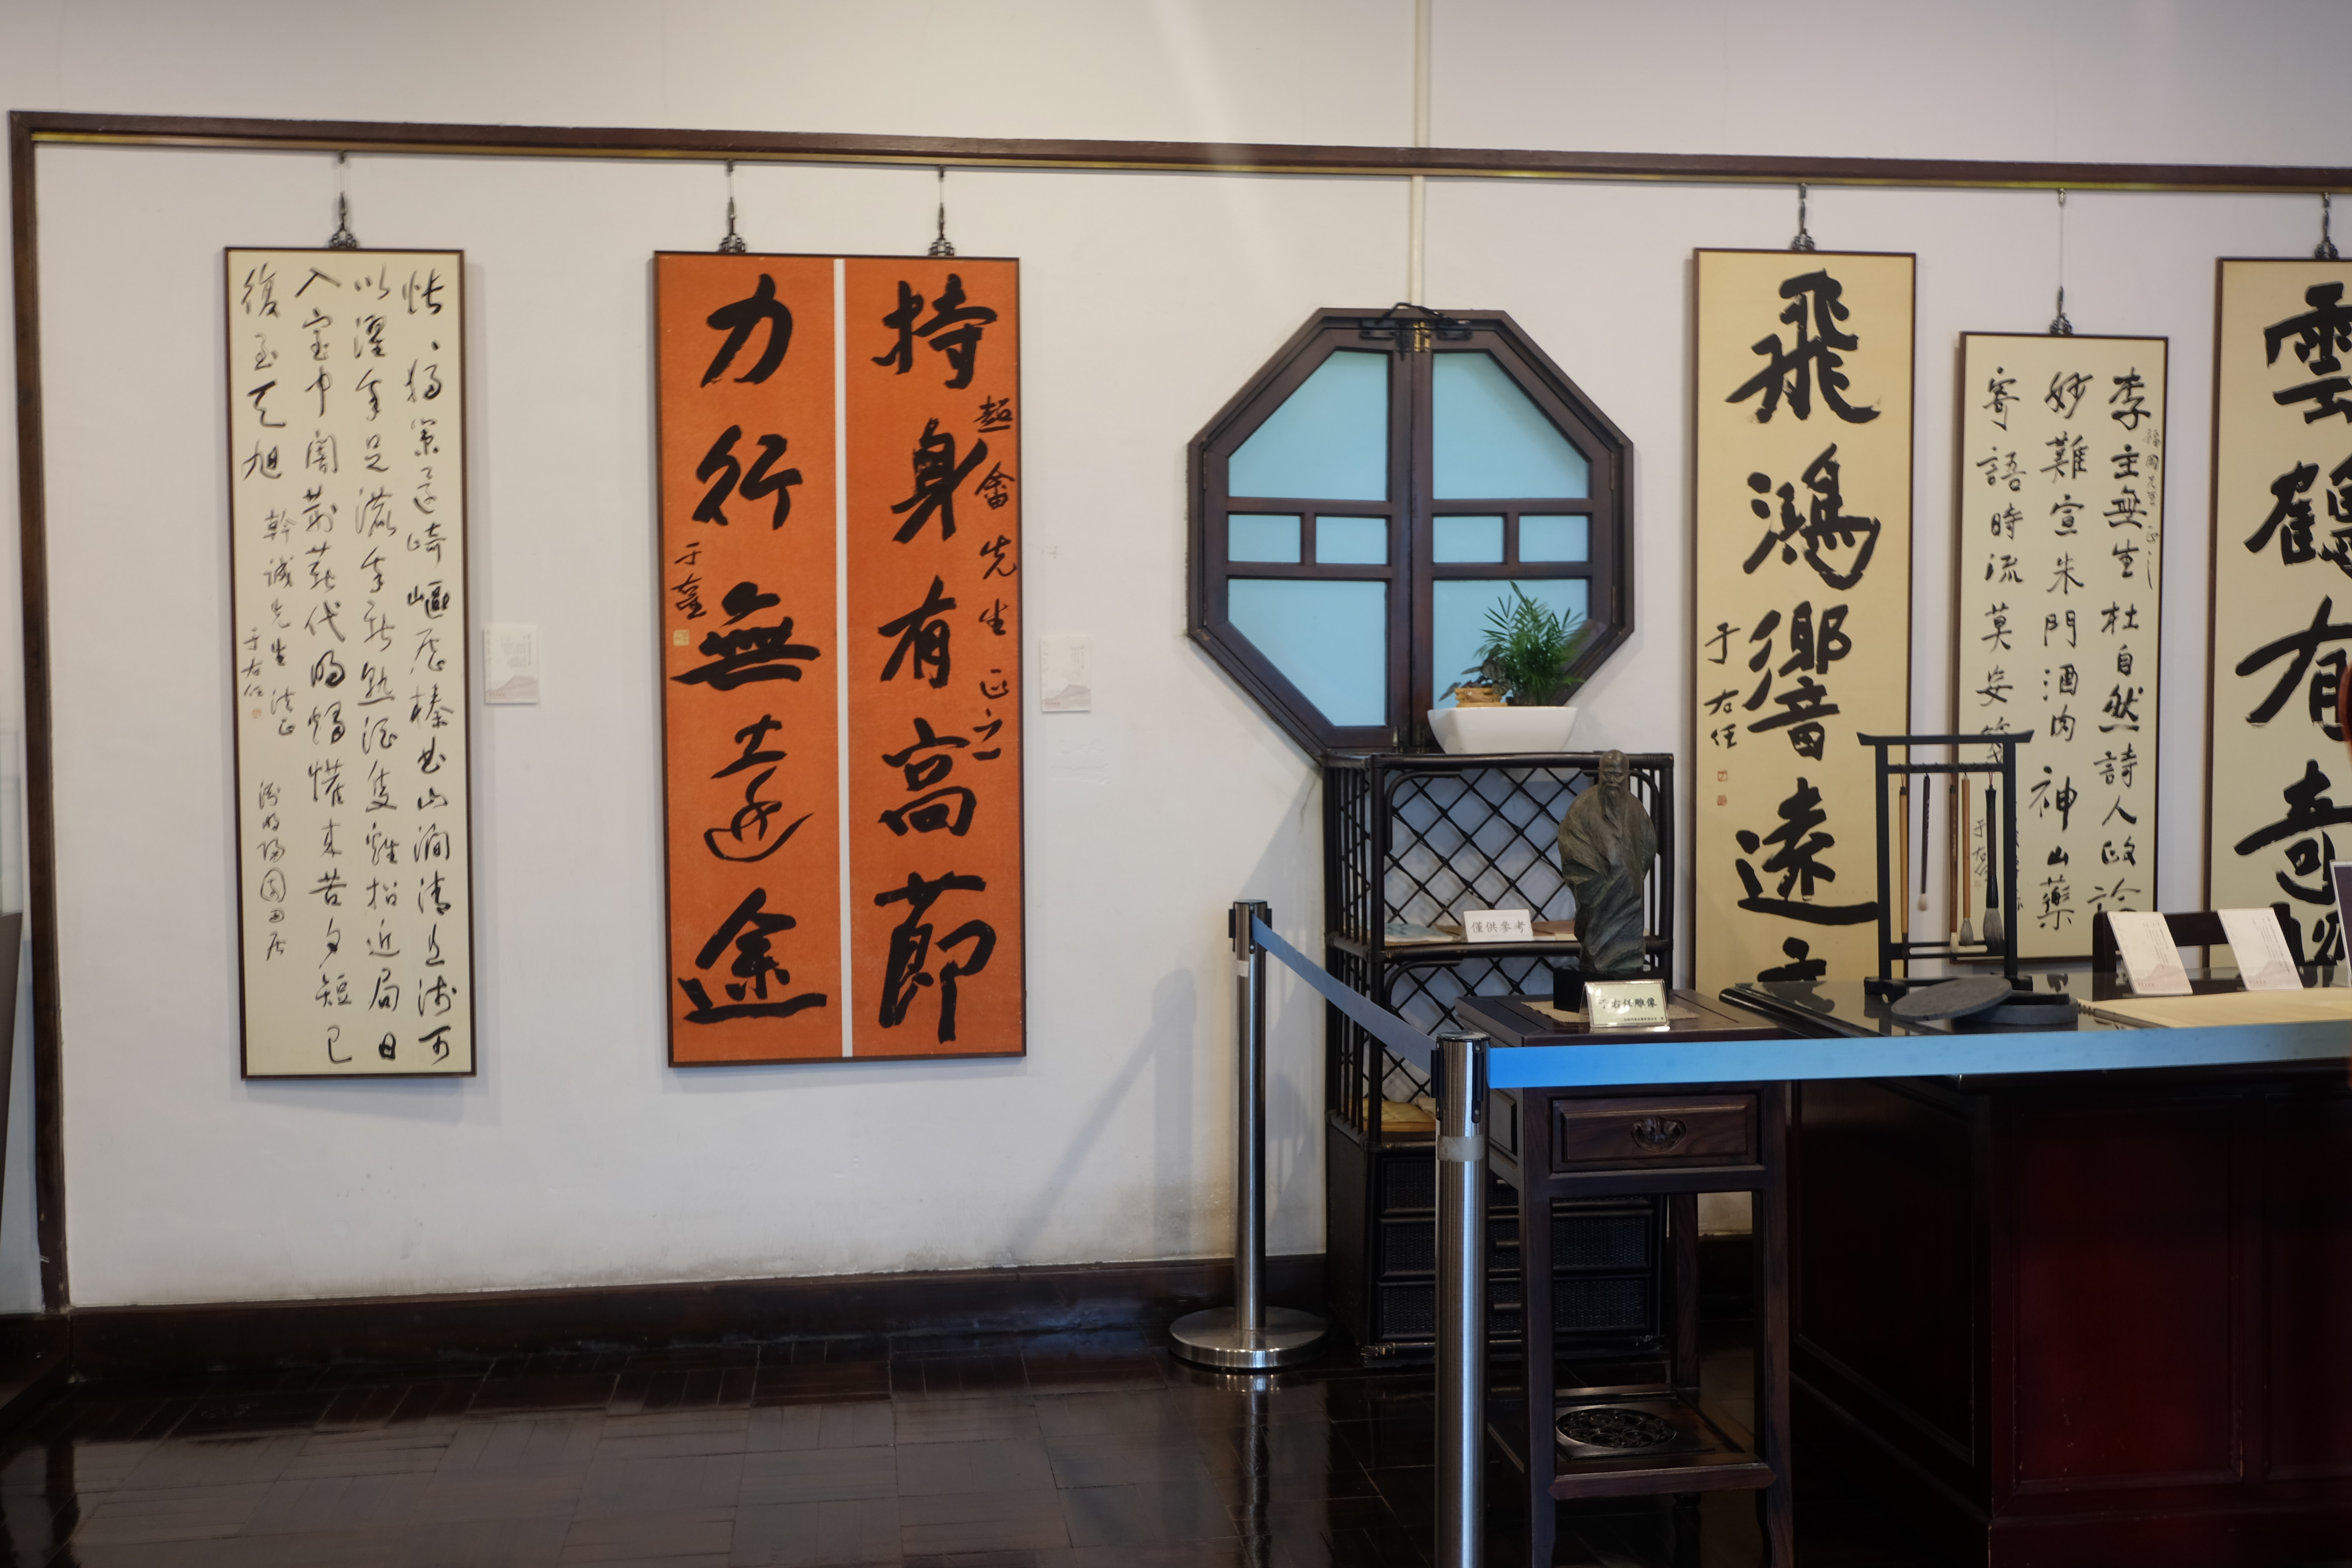 悵、獨策還崎嶇歷榛曲山澗清且淺可
以濯吾足漉吾新熟酒隻雞招近局日
入室中闇荊薪代明燭懽來苦夕短已
復至天旭
幹誠先生法正
于右任
園田居
超畬先生正之
持身有高節
力行無遠途
于右任
飛鴻響遠音
于右任
李主無生杜自然詩人政論
妙難宣朱門酒肉神山藥
寄語時流莫妄箋
于右任
雲鶴有奇
僅供參考
于右任雕像